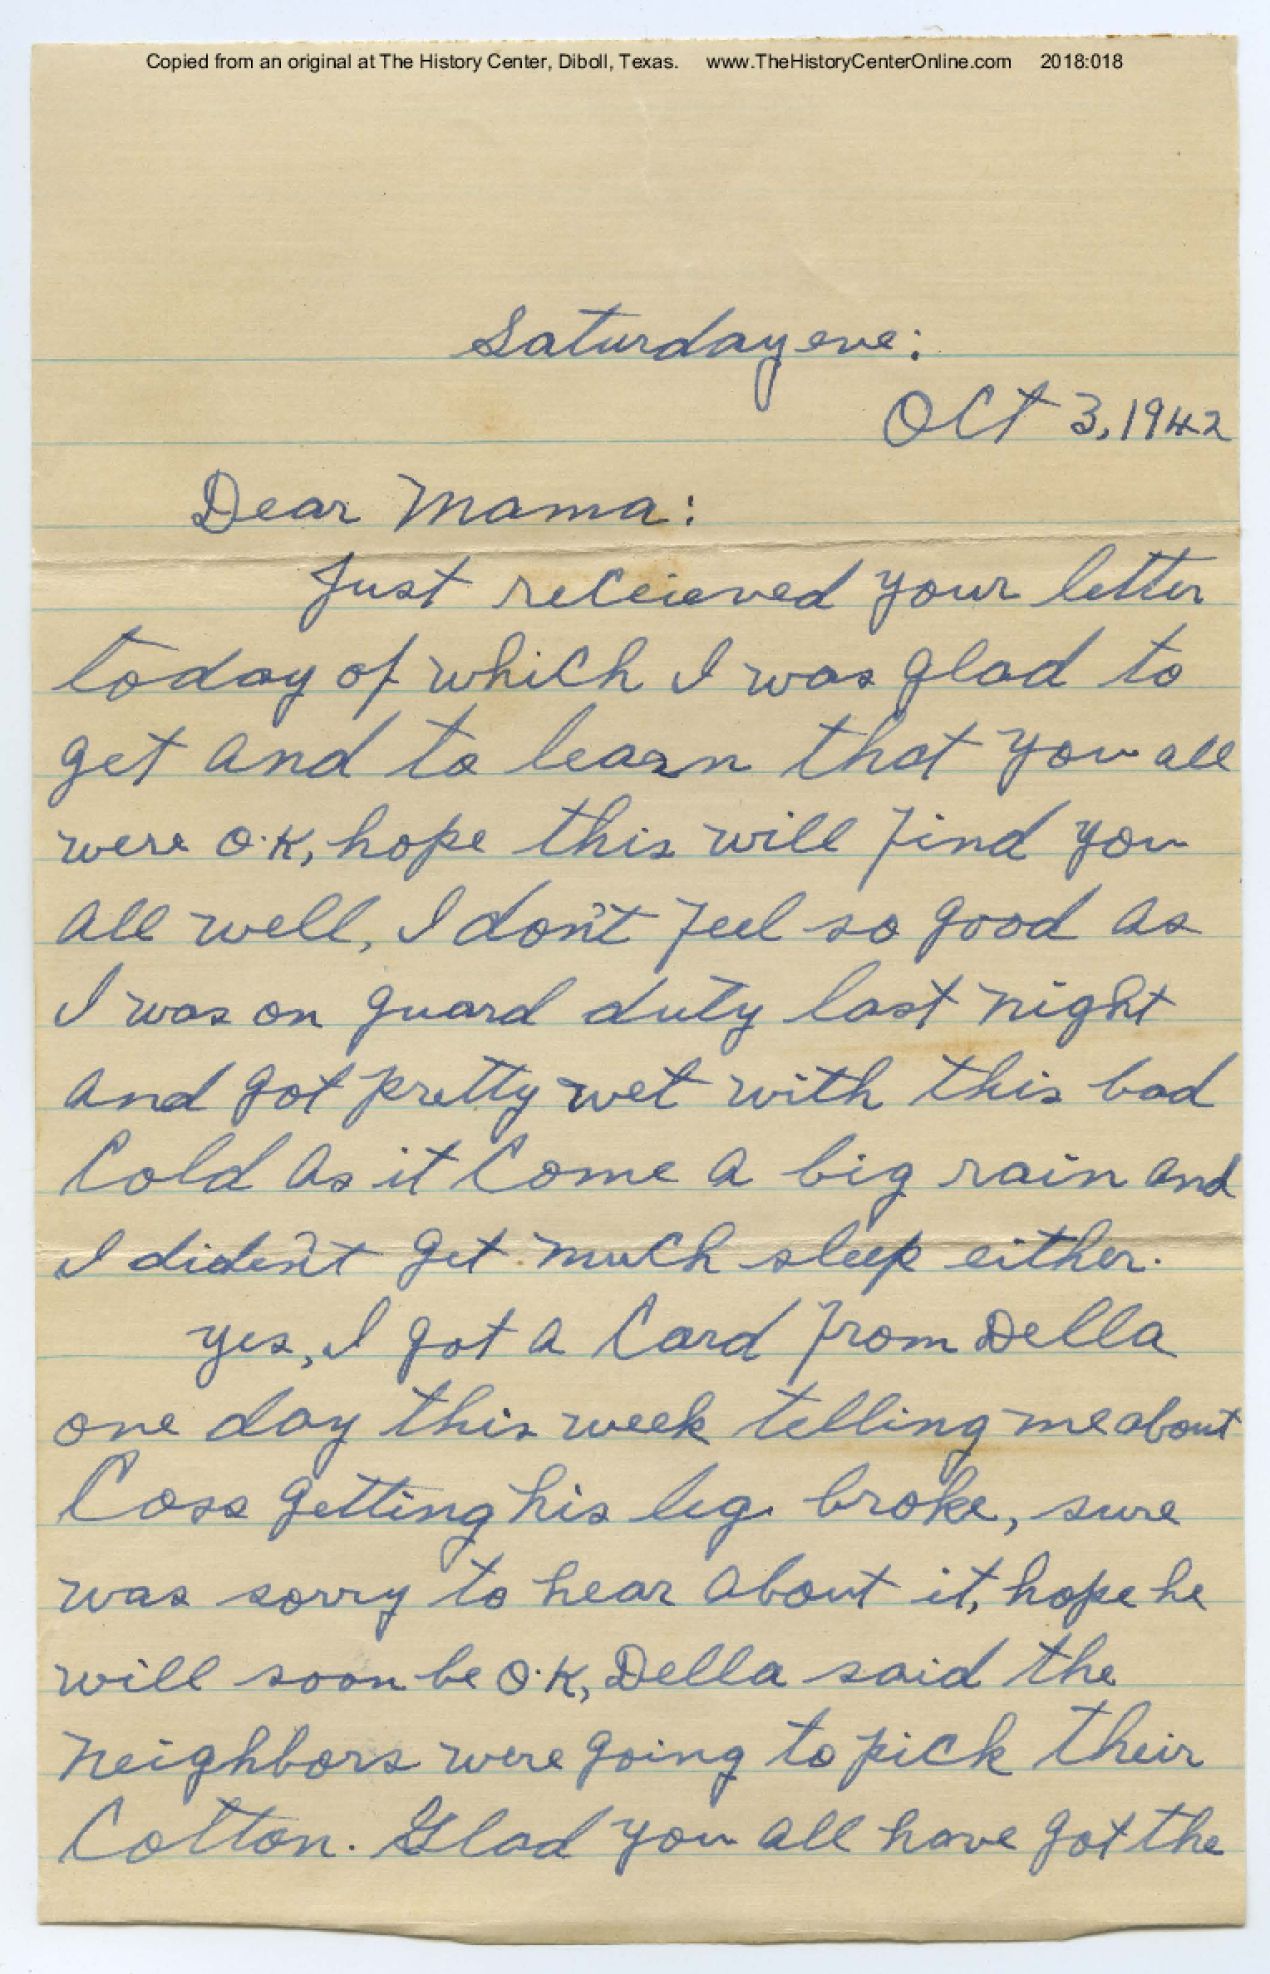 Copied from an original at The History Center, Diboll, Texas. www.TheHistoryCenterOnline.com 2018:018
Saturday eve:
Oct 3, 1942
Dear Mama:
Just receieved your letter
today of which I was glad to
get and to learn that you all
were O.K, hope this will find you
all well, I don't feel so good as
I was on guard duty last night
and got pretty wet with this bad
Cold as it Come a big rain and
I diden't get much sleep either.
yes, I got a Card from Della
one day this week telling me about
Coss getting his leg broke, sure
was sorry to hear about it, hope he
will soon be O.K, Della said the
neighbors were going to pick their
Cotton. Glad you all have got the